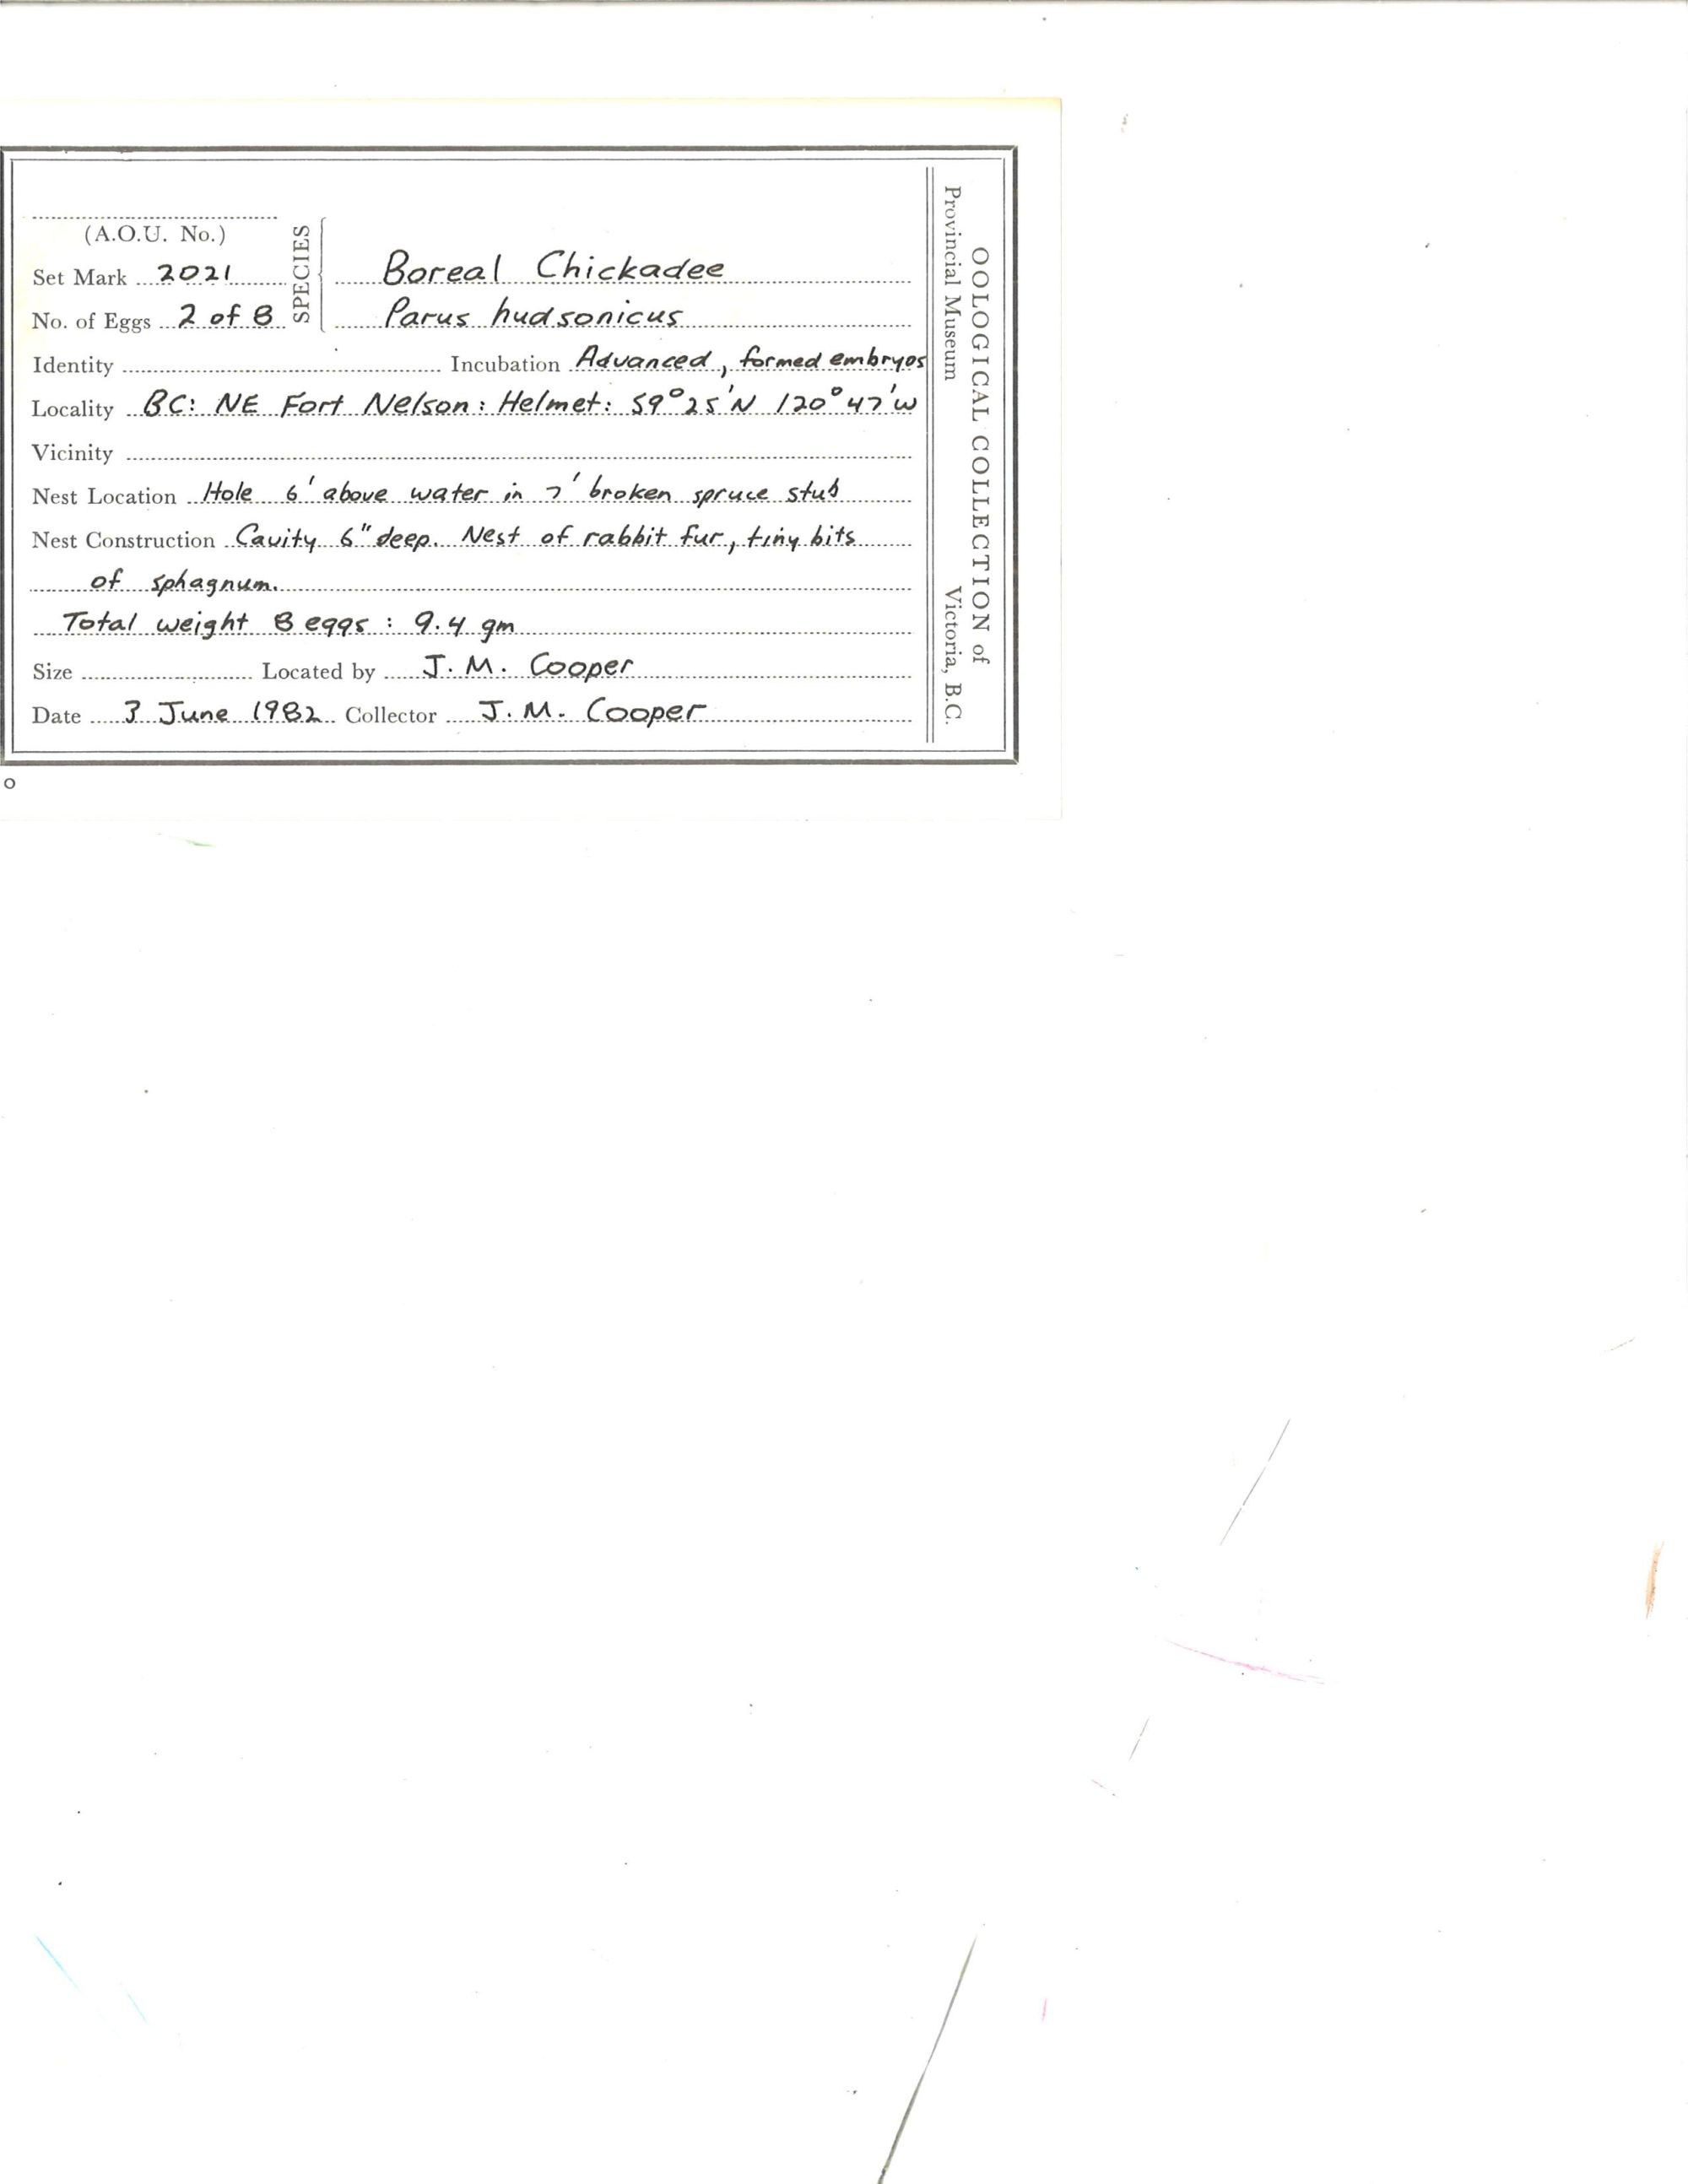 (A.O.U. No.)
SPECIES
Set Mark 2021
Boreal Chickadee
No. of Eggs 2 of 8
Parus hudsonicus
Identity Incubation Advanced, formed embryos
Locality BC: NE Fort Nelson: Helmet: 59°25'N 120°47'W
Vicinity
Nest Location Hole 6' above water in 7' broken spruce stub
Nest Construction Cavity 6" deep. Nest of rabbit fur, tiny bits
of sphagnum.
Total weight 8 eggs: 9.4 gm
Size Located by J. M. Cooper
Date 3 June 1982 Collector J. M. Cooper
OOLOGICAL COLLECTION of
Provincial Museum Victoria, B.C.
o